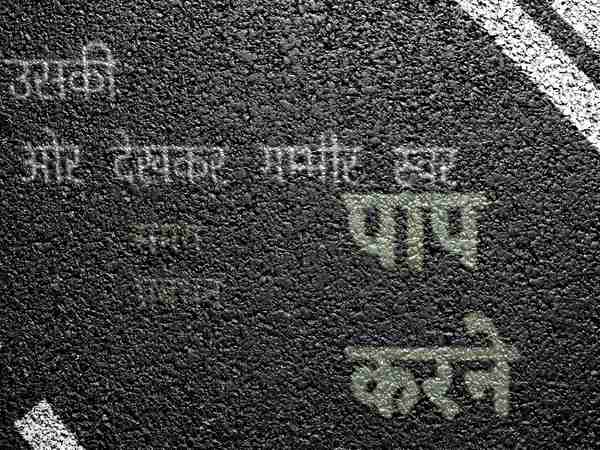 उसकी
ओर देखकर गम्भीर स्वर
पाप
करने